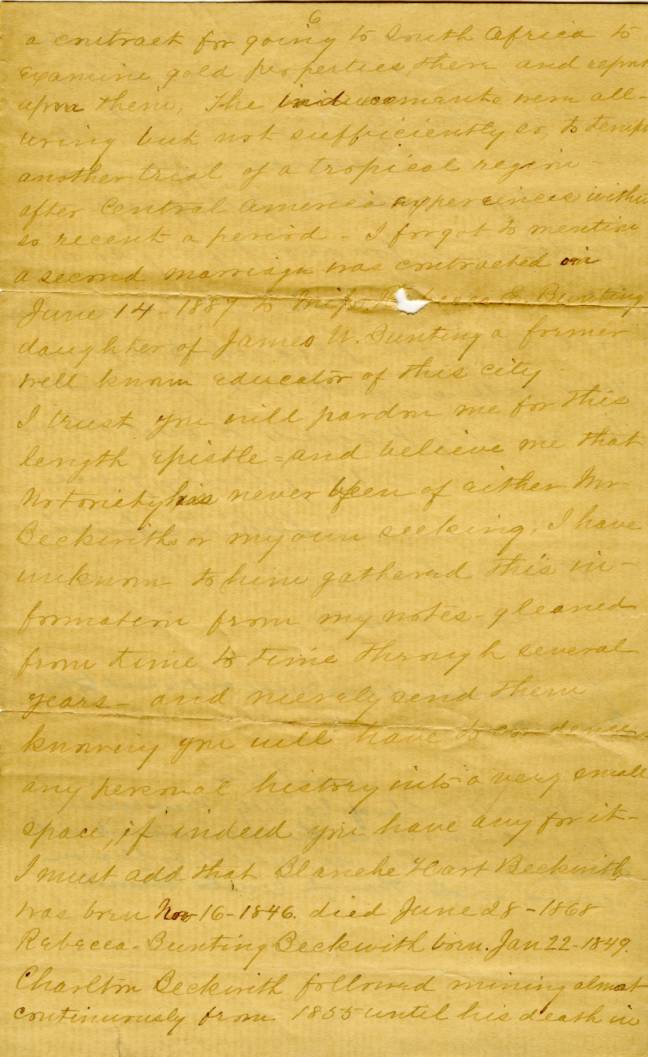 6
a contract for going to South Africa to
examine gold properties there and report
upon them, The inducements were all-
uring but not sufficiently so, to tempt
another trial of a tropical region -
after Central America experiences within
so recent a period - I forgot to mention
a second marriage was contracted on
June 14 - 1887 to Miss Rebecca E Bunting
daughter of James W. Bunting a former
well known educator of this city -
I trust you will pardon me for this
length epistle - and believe me that
Notoriety has never been of either Mr
Beckwith or my own seeking. I have
unknown to him gathered this in-
formation from my notes - gleaned
from time to time through several
years - and merely send them
knowing you will have to condense
any personal history into a very small
space, if indeed you have any for it -
I must add that Blanche Hart Beckwith
was born Nov 16 - 1846. died June 28 - 1868
Rebecca Bunting Beckwith born. Jan 22 - 1849.
Charlton Beckwith followed mining almost
continuously from 1855 until his death in